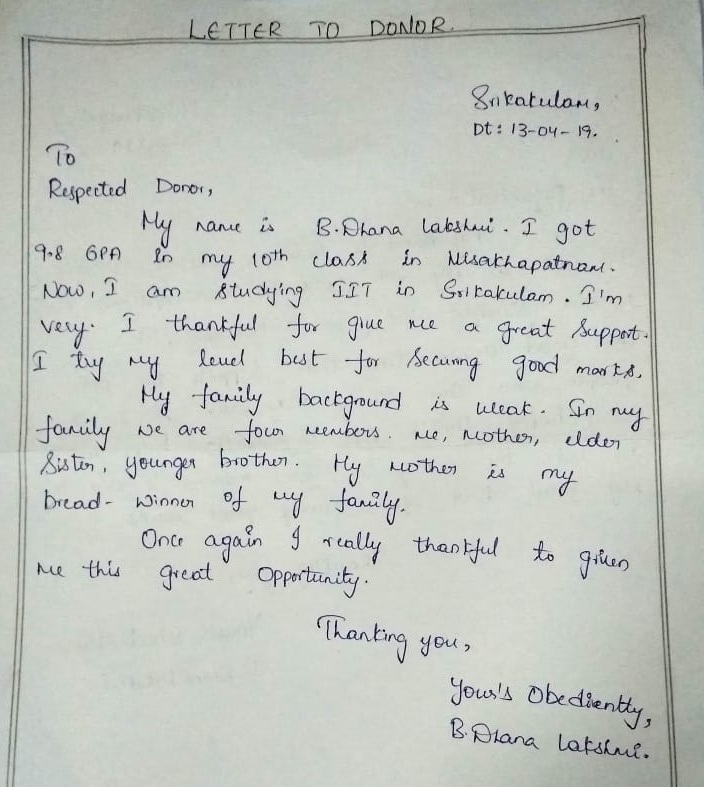 LETTER TO DONOR.
Srikakulam,
Dt: 13-04-19.
To
Respected Donor,
My name is B.Dhana Lakshmi. I got
9.8 GPA in my 10th class in Visakhapatnam.
Now, I am studying IIT in Srikakulam. I'm
very. I thankful for give me a great support.
I try my level best for securing good marks.
My family background is weak. In my
family we are four members. Me, Mother, elder
Sister, younger brother. My Mother is my
bread-winner of my family.
Once again I really thankful to given
me this great Opportunity.
Thanking you,
Your's Obediently,
B.Dhana Lakshmi.